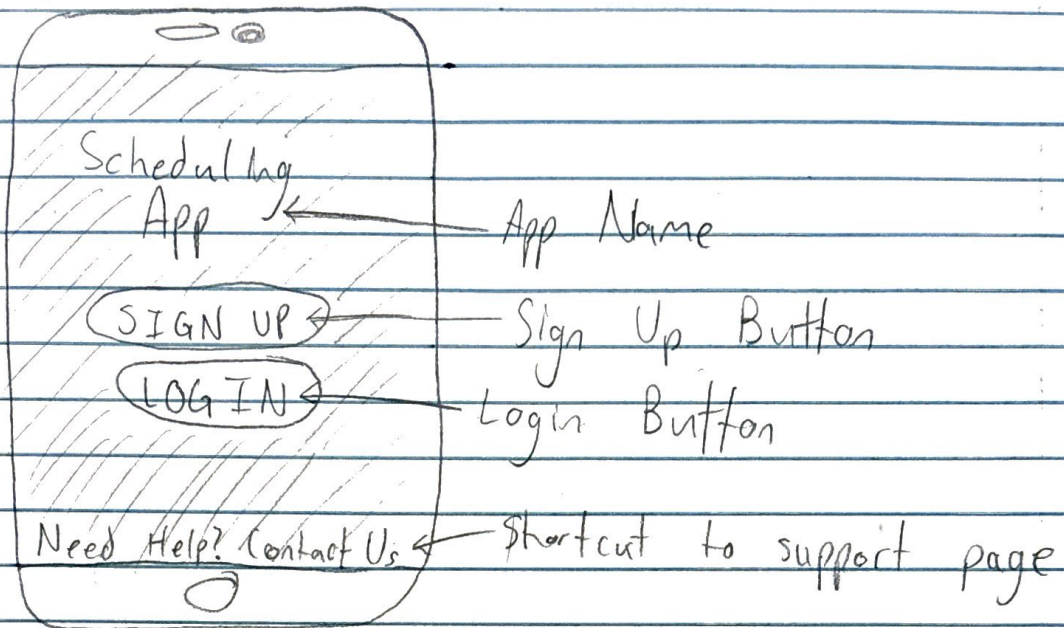 Scheduling
App
App Name
SIGN UP
Sign Up Button
LOGIN
Login Button
Need Help? Contact Us
Shortcut to support page